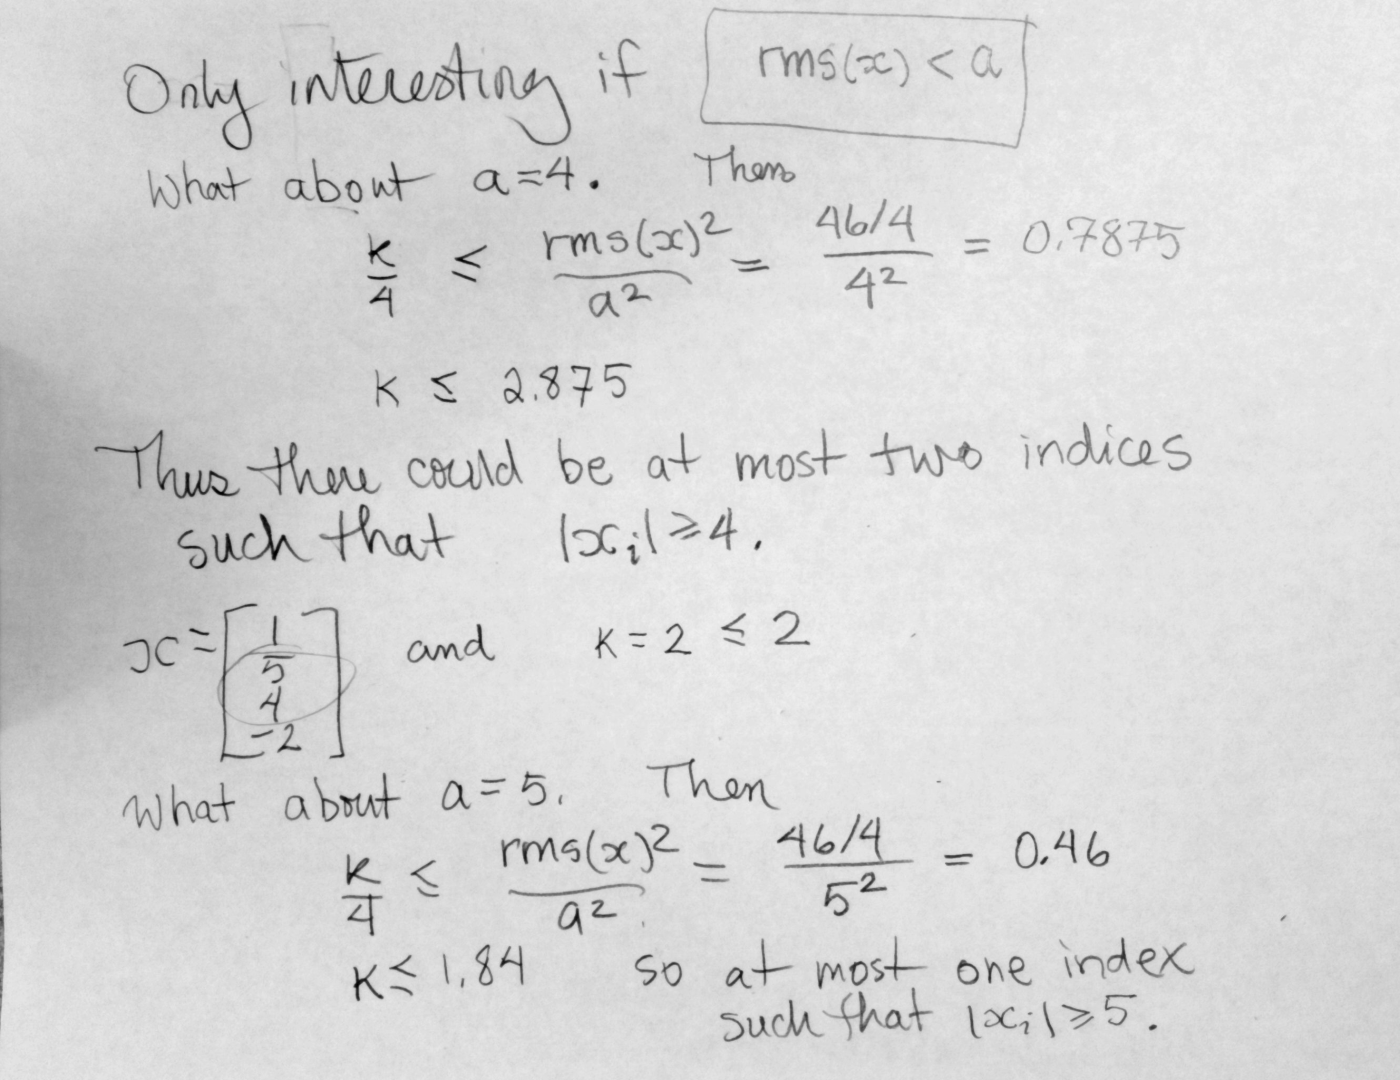 Only interesting if rms(x) < a
What about a=4. Then
k/4 ≤ rms(x)²/a² = 46/4/4² = 0.7875
K ≤ 2.875
Thus there could be at most two indices
such that |xᵢ| ≥ 4.
x = [1 5 4 -2] and K = 2 ≤ 2
What about a = 5. Then
k/4 ≤ rms(x)²/a² = 46/4/5² = 0.46
K ≤ 1.84 so at most one index
such that |xᵢ| ≥ 5.